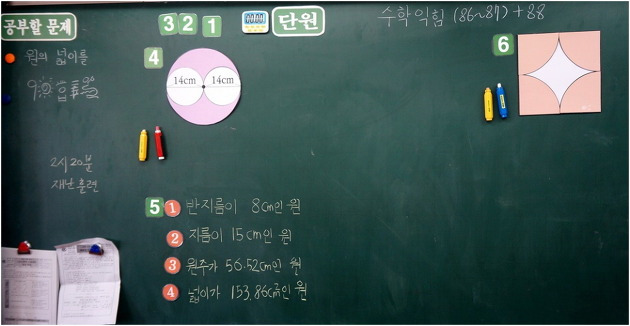 공부할 문제
3 2 1 단원
수학익힘 (86~87) + 88
원의 넓이를
4
14cm 14cm
6
2시 20분
재난훈련
5
1 반지름이 8cm인 원
2 지름이 15cm인 원
3 원주가 56.52cm인 원
4 넓이가 153.86cm²인 원